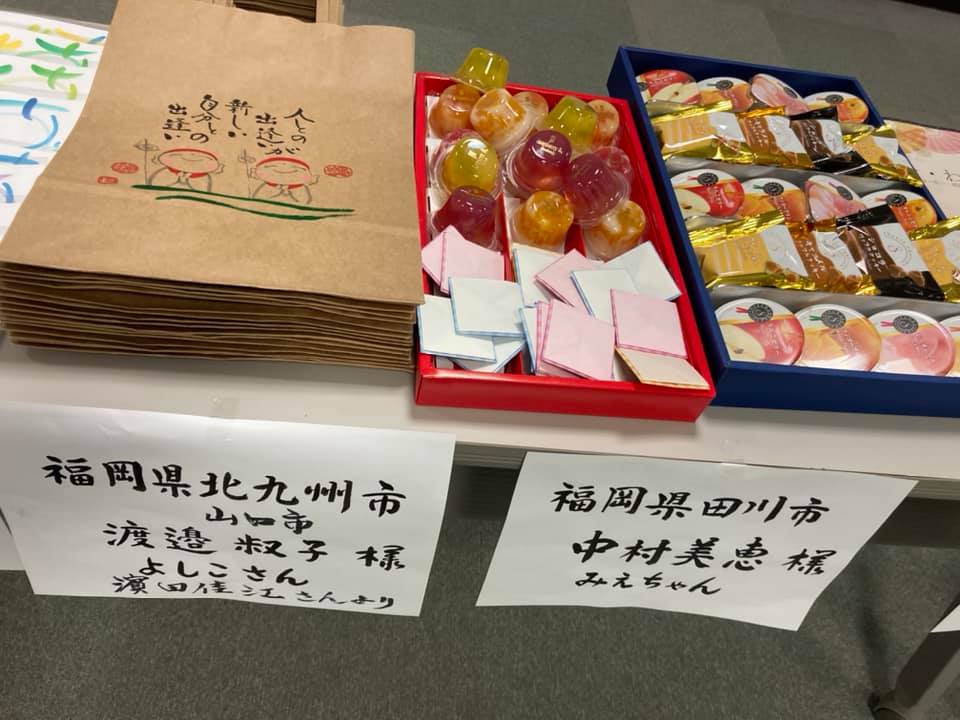 人との
出逢いが
新しい
自分との
出逢い
福岡県北九州市
山口市
渡邉 淑子 様
よしこさん
濱田佳江さんより
福岡県田川市
中村美恵 様
みえちゃん